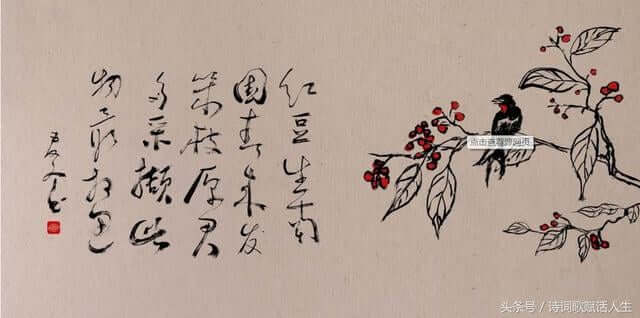 红豆生南
国春来发
幾枝愿君
多采撷此
物最相思
点击查看源网页
头条号 / 诗词歌赋话人生